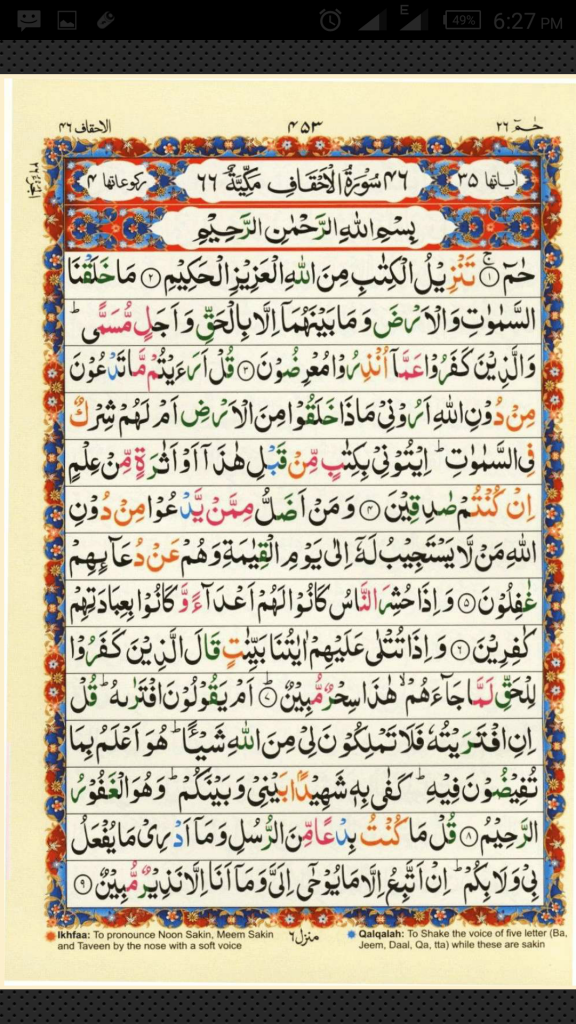 49% 6:27 PM
E
حٰمٓ ٢٦
٤٥٣
الاحقاف ٤٦
اٰیاتها ٣٥
٤٦ سُوْرَةُ الْاَحْقَافِ مَكِّيَّةٌ ٦٦
رکوعاتها ٤
بِسْمِ اللّٰهِ الرَّحْمٰنِ الرَّحِيْمِ
حٰمٓ ۚ ١ تَنْزِيْلُ الْكِتٰبِ مِنَ اللّٰهِ الْعَزِيْزِ الْحَكِيْمِ ٢ مَا خَلَقْنَا
السَّمٰوٰتِ وَالْاَرْضَ وَمَا بَيْنَهُمَآ اِلَّا بِالْحَقِّ وَاَجَلٍ مُّسَمًّى ؕ
وَالَّذِيْنَ كَفَرُوْا عَمَّآ اُنْذِرُوْا مُعْرِضُوْنَ ٣ قُلْ اَرَءَيْتُمْ مَّا تَدْعُوْنَ
مِنْ دُوْنِ اللّٰهِ اَرُوْنِيْ مَاذَا خَلَقُوْا مِنَ الْاَرْضِ اَمْ لَهُمْ شِرْكٌ
فِي السَّمٰوٰتِ ؕ اِيْتُوْنِيْ بِكِتٰبٍ مِّنْ قَبْلِ هٰذَآ اَوْ اَثٰرَةٍ مِّنْ عِلْمٍ
اِنْ كُنْتُمْ صٰدِقِيْنَ ٤ وَمَنْ اَضَلُّ مِمَّنْ يَّدْعُوْا مِنْ دُوْنِ
اللّٰهِ مَنْ لَّا يَسْتَجِيْبُ لَهٗٓ اِلٰى يَوْمِ الْقِيٰمَةِ وَهُمْ عَنْ دُعَآئِهِمْ
غٰفِلُوْنَ ٥ وَاِذَا حُشِرَ النَّاسُ كَانُوْا لَهُمْ اَعْدَآءً وَّ كَانُوْا بِعِبَادَتِهِمْ
كٰفِرِيْنَ ٦ وَاِذَا تُتْلٰى عَلَيْهِمْ اٰيٰتُنَا بَيِّنٰتٍ قَالَ الَّذِيْنَ كَفَرُوْا
لِلْحَقِّ لَمَّا جَآءَهُمْ ۙ هٰذَا سِحْرٌ مُّبِيْنٌ ؕ ٧ اَمْ يَقُوْلُوْنَ افْتَرٰىهُ ؕ قُلْ
اِنِ افْتَرَيْتُهٗ فَلَا تَمْلِكُوْنَ لِيْ مِنَ اللّٰهِ شَيْـًٔا ؕ هُوَ اَعْلَمُ بِمَا
تُفِيْضُوْنَ فِيْهِ ؕ كَفٰى بِهٖ شَهِيْدًۢا بَيْنِيْ وَبَيْنَكُمْ ؕ وَهُوَ الْغَفُوْرُ
الرَّحِيْمُ ٨ قُلْ مَا كُنْتُ بِدْعًا مِّنَ الرُّسُلِ وَمَآ اَدْرِيْ مَا يُفْعَلُ
بِيْ وَلَا بِكُمْ ؕ اِنْ اَتَّبِعُ اِلَّا مَا يُوْحٰٓى اِلَيَّ وَمَآ اَنَا اِلَّا نَذِيْرٌ مُّبِيْنٌ ٩
Ikhfaa: To pronounce Noon Sakin, Meem Sakin
and Taveen by the nose with a soft voice
منزل ٦
Qalqalah: To Shake the voice of five letter (Ba,
Jeem, Daal, Qa, tta) while these are sakin